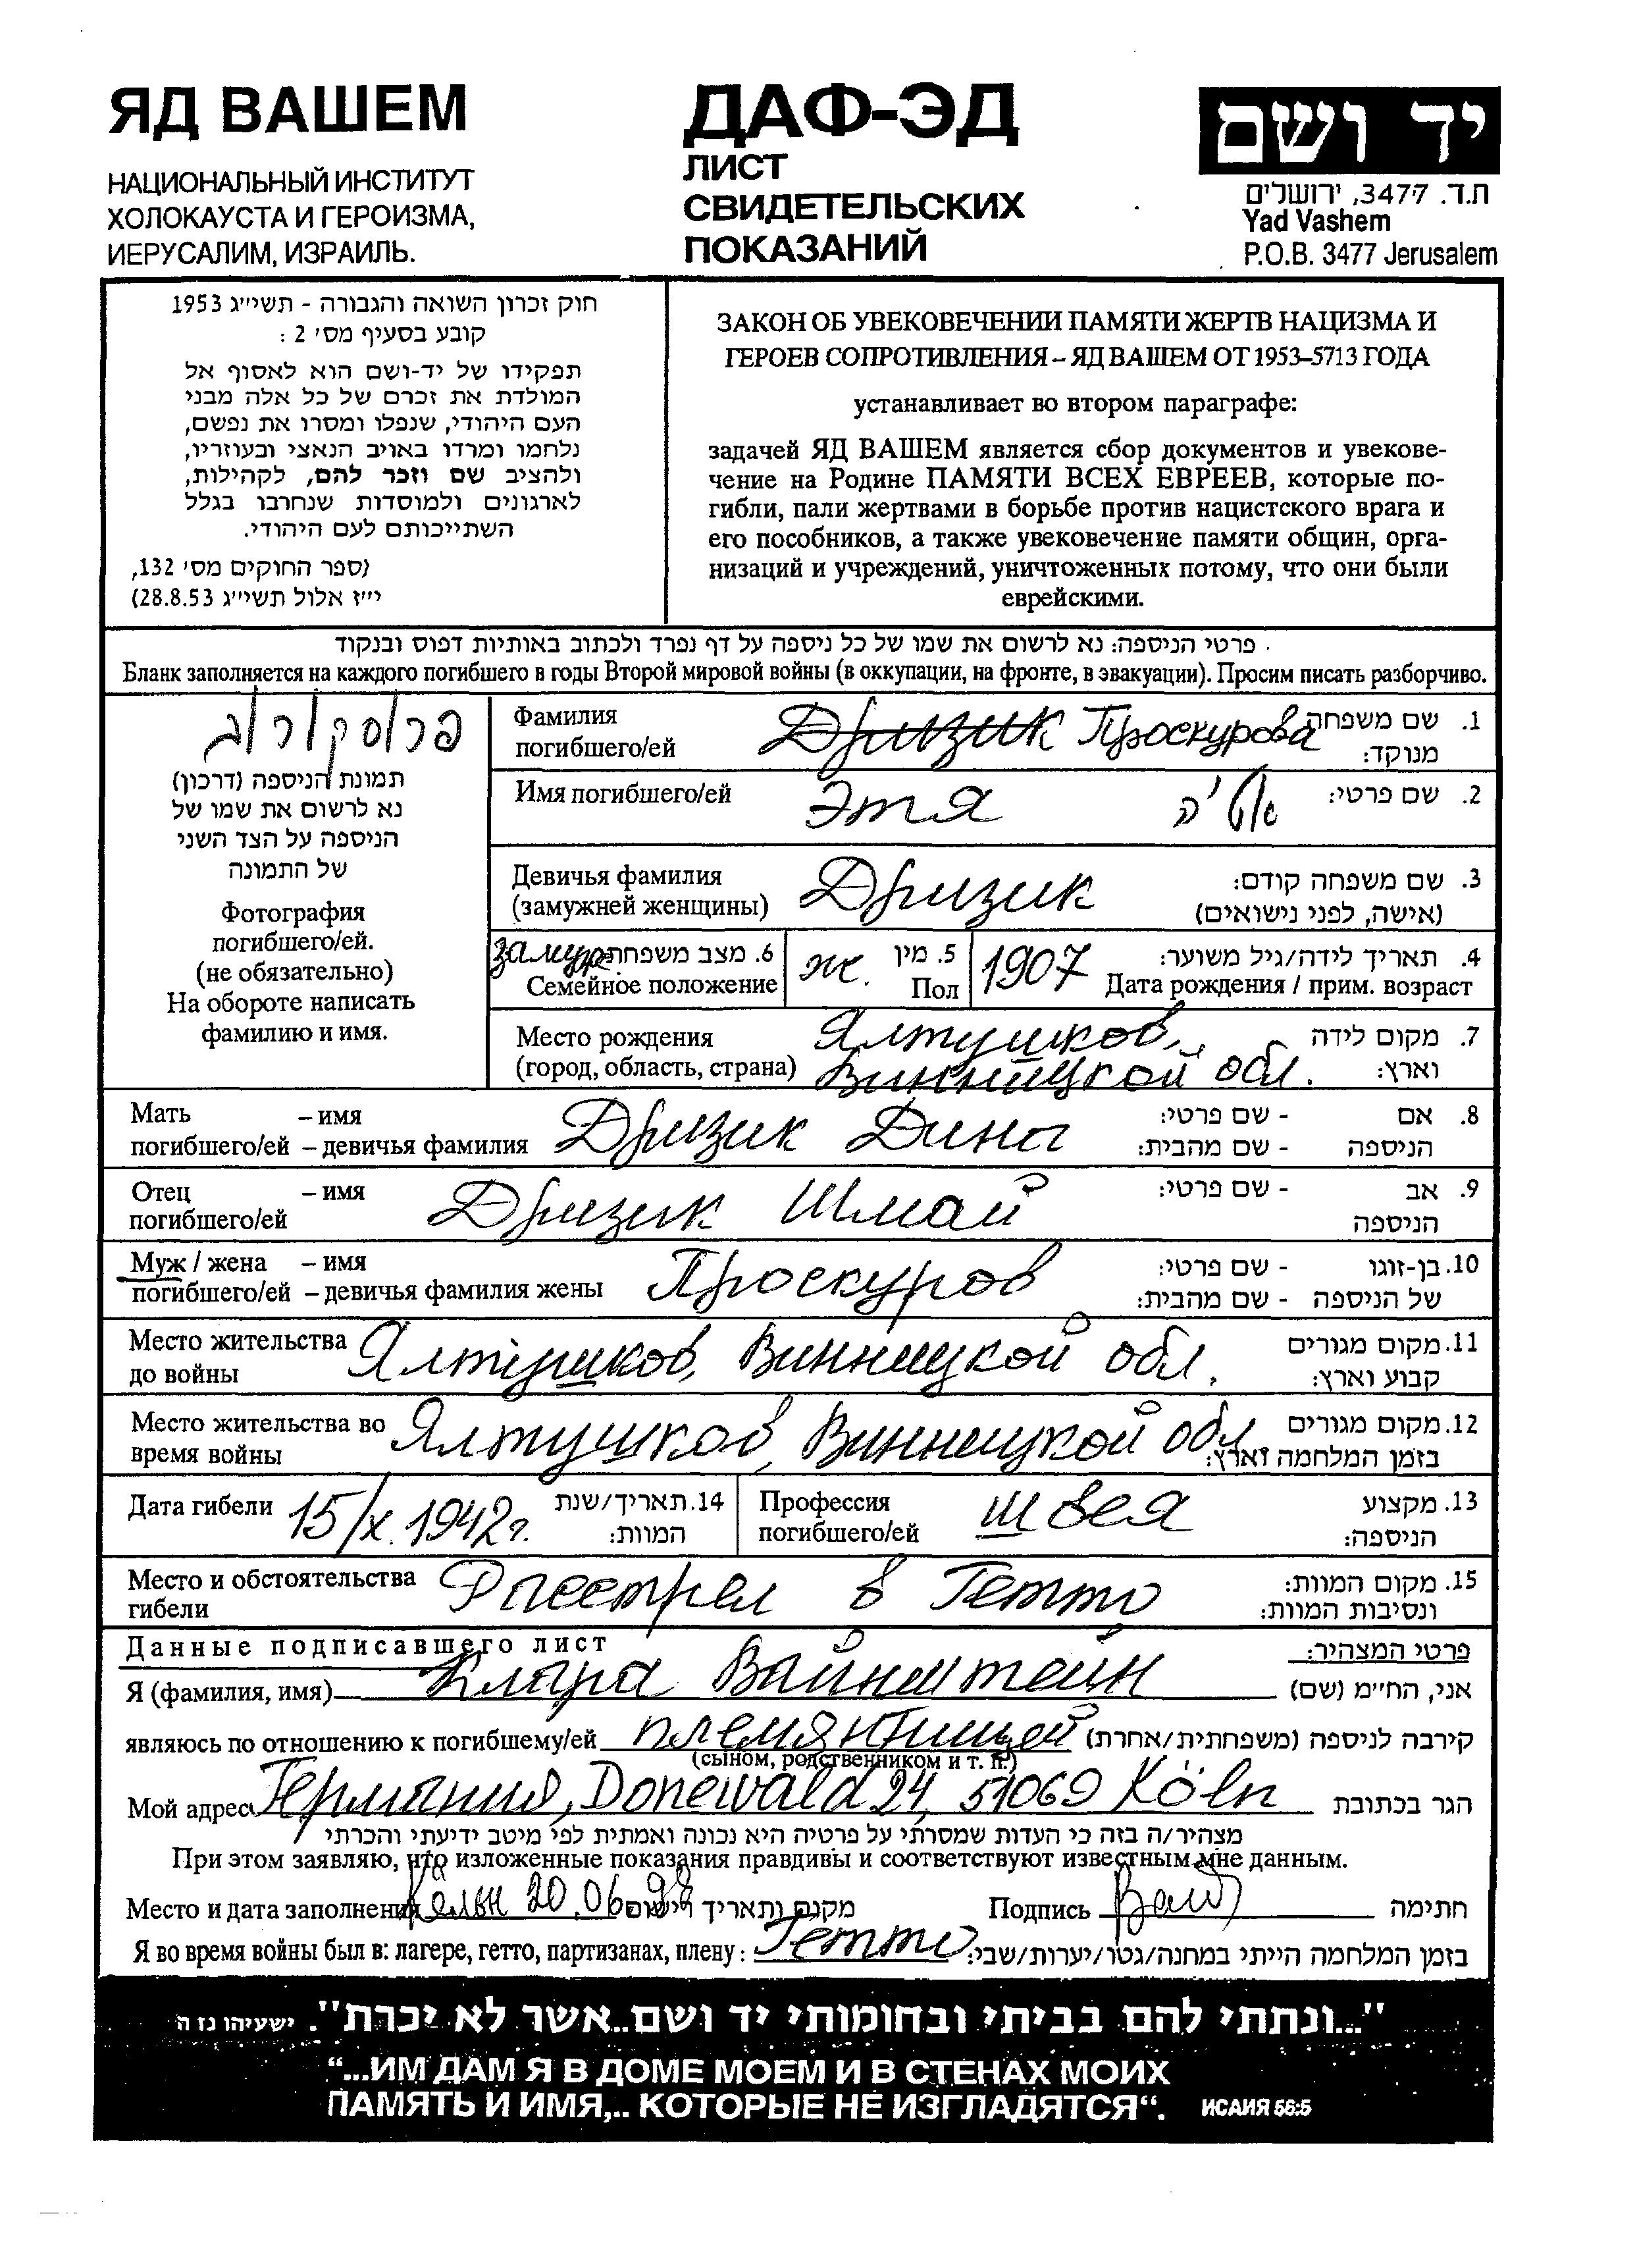 ЯД ВАШЕМ
НАЦИОНАЛЬНЫЙ ИНСТИТУТ
ХОЛОКАУСТА И ГЕРОИЗМА,
ИЕРУСАЛИМ, ИЗРАИЛЬ.
ДАФ-ЭД
ЛИСТ
СВИДЕТЕЛЬСКИХ
ПОКАЗАНИЙ
יד ושם
ת.ד. 3477, ירושלים
Yad Vashem
P.O.B. 3477 Jerusalem
חוק זכרון השואה והגבורה - תשי״ג 1953
קובע בסעיף מס׳ 2 :
תפקידו של יד-ושם הוא לאסוף אל
המולדת את זכרם של כל אלה מבני
העם היהודי, שנפלו ומסרו את נפשם,
נלחמו ומרדו באויב הנאצי ובעוזריו,
ולהציב שם וזכר להם, לקהילות,
לארגונים ולמוסדות שנחרבו בגלל
השתייכותם לעם היהודי.
(ספר החוקים מס׳ 132,
י״ז אלול תשי״ג 28.8.53)
ЗАКОН ОБ УВЕКОВЕЧЕНИИ ПАМЯТИ ЖЕРТВ НАЦИЗМА И
ГЕРОЕВ СОПРОТИВЛЕНИЯ – ЯД ВАШЕМ ОТ 1953–5713 ГОДА
устанавливает во втором параграфе:
задачей ЯД ВАШЕМ является сбор документов и увекове-
чение на Родине ПАМЯТИ ВСЕХ ЕВРЕЕВ, которые по-
гибли, пали жертвами в борьбе против нацистского врага и
его пособников, а также увековечение памяти общин, орга-
низаций и учреждений, уничтоженных потому, что они были
еврейскими.
פרטי הניספה: נא לרשום את שמו של כל ניספה על דף נפרד ולכתוב באותיות דפוס ובנקוד
Бланк заполняется на каждого погибшего в годы Второй мировой войны (в оккупации, на фронте, в эвакуации). Просим писать разборчиво.
תמונת הניספה (דרכון)
נא לרשום את שמו של
הניספה על הצד השני
של התמונה
Фотография
погибшего/ей.
(не обязательно)
На обороте написать
фамилию и имя.
Фамилия Дризик Проскурова 1. שם משפחה
погибшего/ей מנוקד:
Имя погибшего/ей Этя אטיה 2. שם פרטי:
Девичья фамилия Дризик 3. שם משפחה קודם:
(замужней женщины) (אישה, לפני נישואים)
замуж 6. מצב משפחתי ж. 5. מין 1907 4. תאריך לידה/גיל משוער:
Семейное положение Пол Дата рождения / прим. возраст
Место рождения Ялтушков, 7. מקום לידה
(город, область, страна) Винницкой обл. וארץ:
Мать – имя Дризик Дина - שם פרטי: 8. אם
погибшего/ей – девичья фамилия - שם מהבית: הניספה
Отец – имя Дризик Шмай - שם פרטי: 9. אב
погибшего/ей הניספה
Муж / жена – имя Проскуров - שם פרטי: 10. בן-זוגו
погибшего/ей – девичья фамилия жены - שם מהבית: של הניספה
Место жительства Ялтушков, Винницкой обл. 11. מקום מגורים
до войны קבוע וארץ:
Место жительства во Ялтушков, Винницкой обл. 12. מקום מגורים
время войны בזמן המלחמה וארץ:
Дата гибели 15/X.1942г. 14. תאריך/שנת Профессия швея 13. מקצוע
המוות: погибшего/ей הניספה:
Место и обстоятельства Расстрел в Гетто 15. מקום המוות:
гибели ונסיבות המוות:
Данные подписавшего лист פרטי המצהיר:
Я (фамилия, имя) Клара Вайнштейн אני, החי״מ (שם)
являюсь по отношению к погибшему/ей племянницей קירבה לניספה (משפחתית/אחרת)
(сыном, родственником и т. п.)
Мой адрес Германия, Donewald 24, 51069 Köln הגר בכתובת
מצהיר/ה בזה כי העדות שמסרתי על פרטיה היא נכונה ואמתית לפי מיטב ידיעתי והכרתי
При этом заявляю, что изложенные показания правдивы и соответствуют известным мне данным.
Место и дата заполнения Кёльн 20.06.98 מקום ותאריך רישום Подпись חתימה
Я во время войны был в: лагере, гетто, партизанах, плену: Гетто בזמן המלחמה הייתי במחנה/גטו/יערות/שבי:
"...ונתתי להם בביתי ובחומותי יד ושם..אשר לא יכרת". ישעיהו נז ה
“...ИМ ДАМ Я В ДОМЕ МОЕМ И В СТЕНАХ МОИХ
ПАМЯТЬ И ИМЯ,.. КОТОРЫЕ НЕ ИЗГЛАДЯТСЯ“. ИСАИЯ 56:5